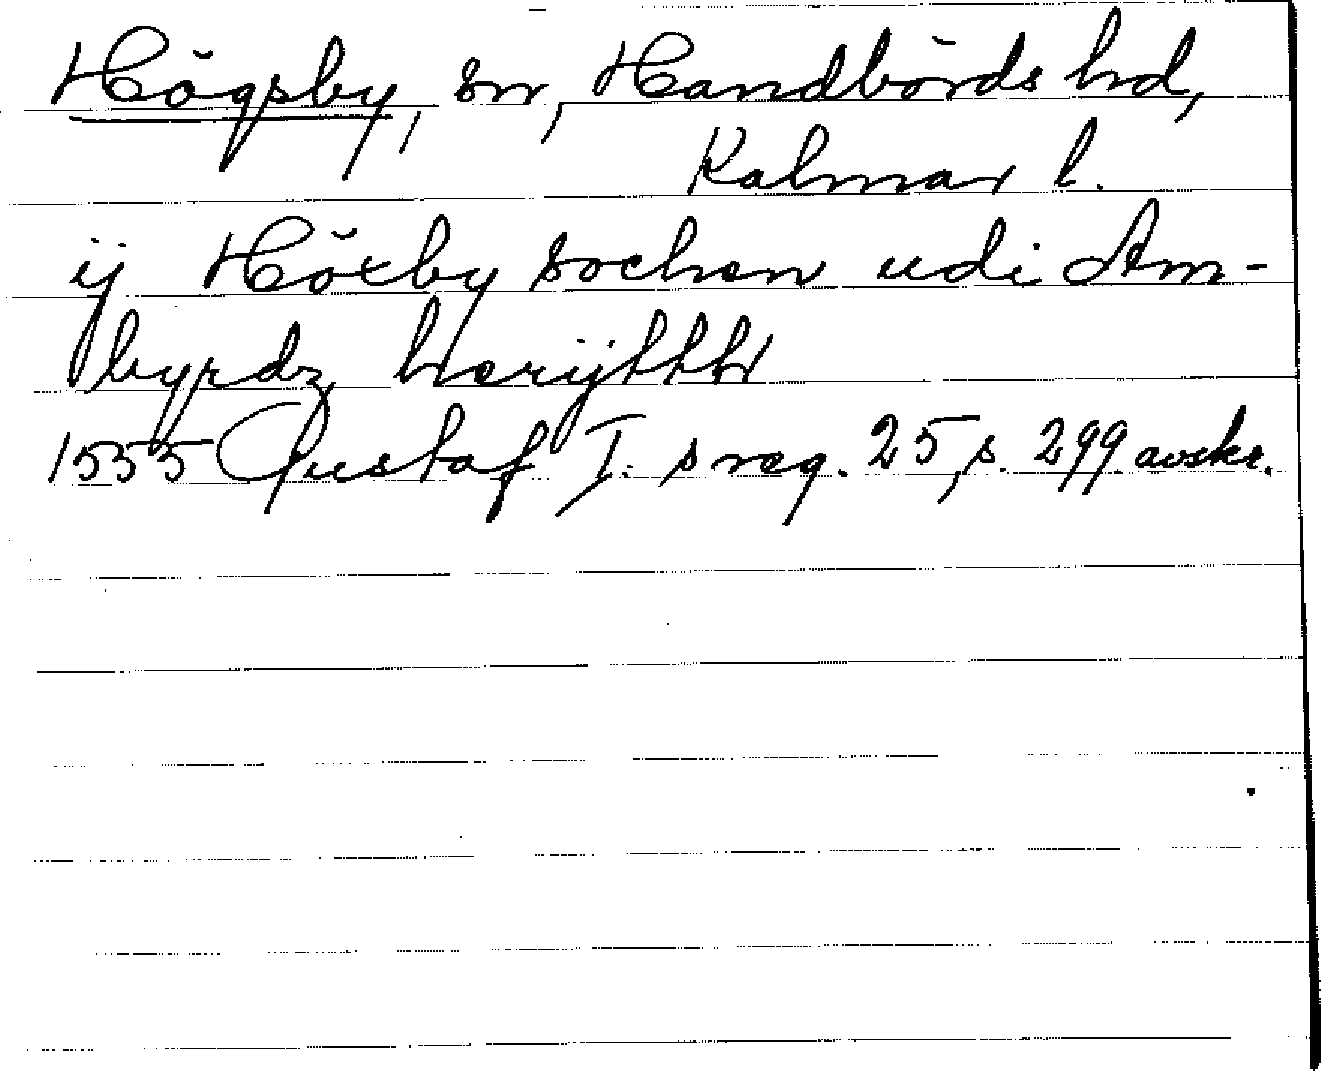 Högsby, sn, Handbörds hd,
Kalmar l.
ij Höxby sochen udi Am-
byrdz herijtth
1555 Gustaf I:s reg. 25, s. 299 avskr.